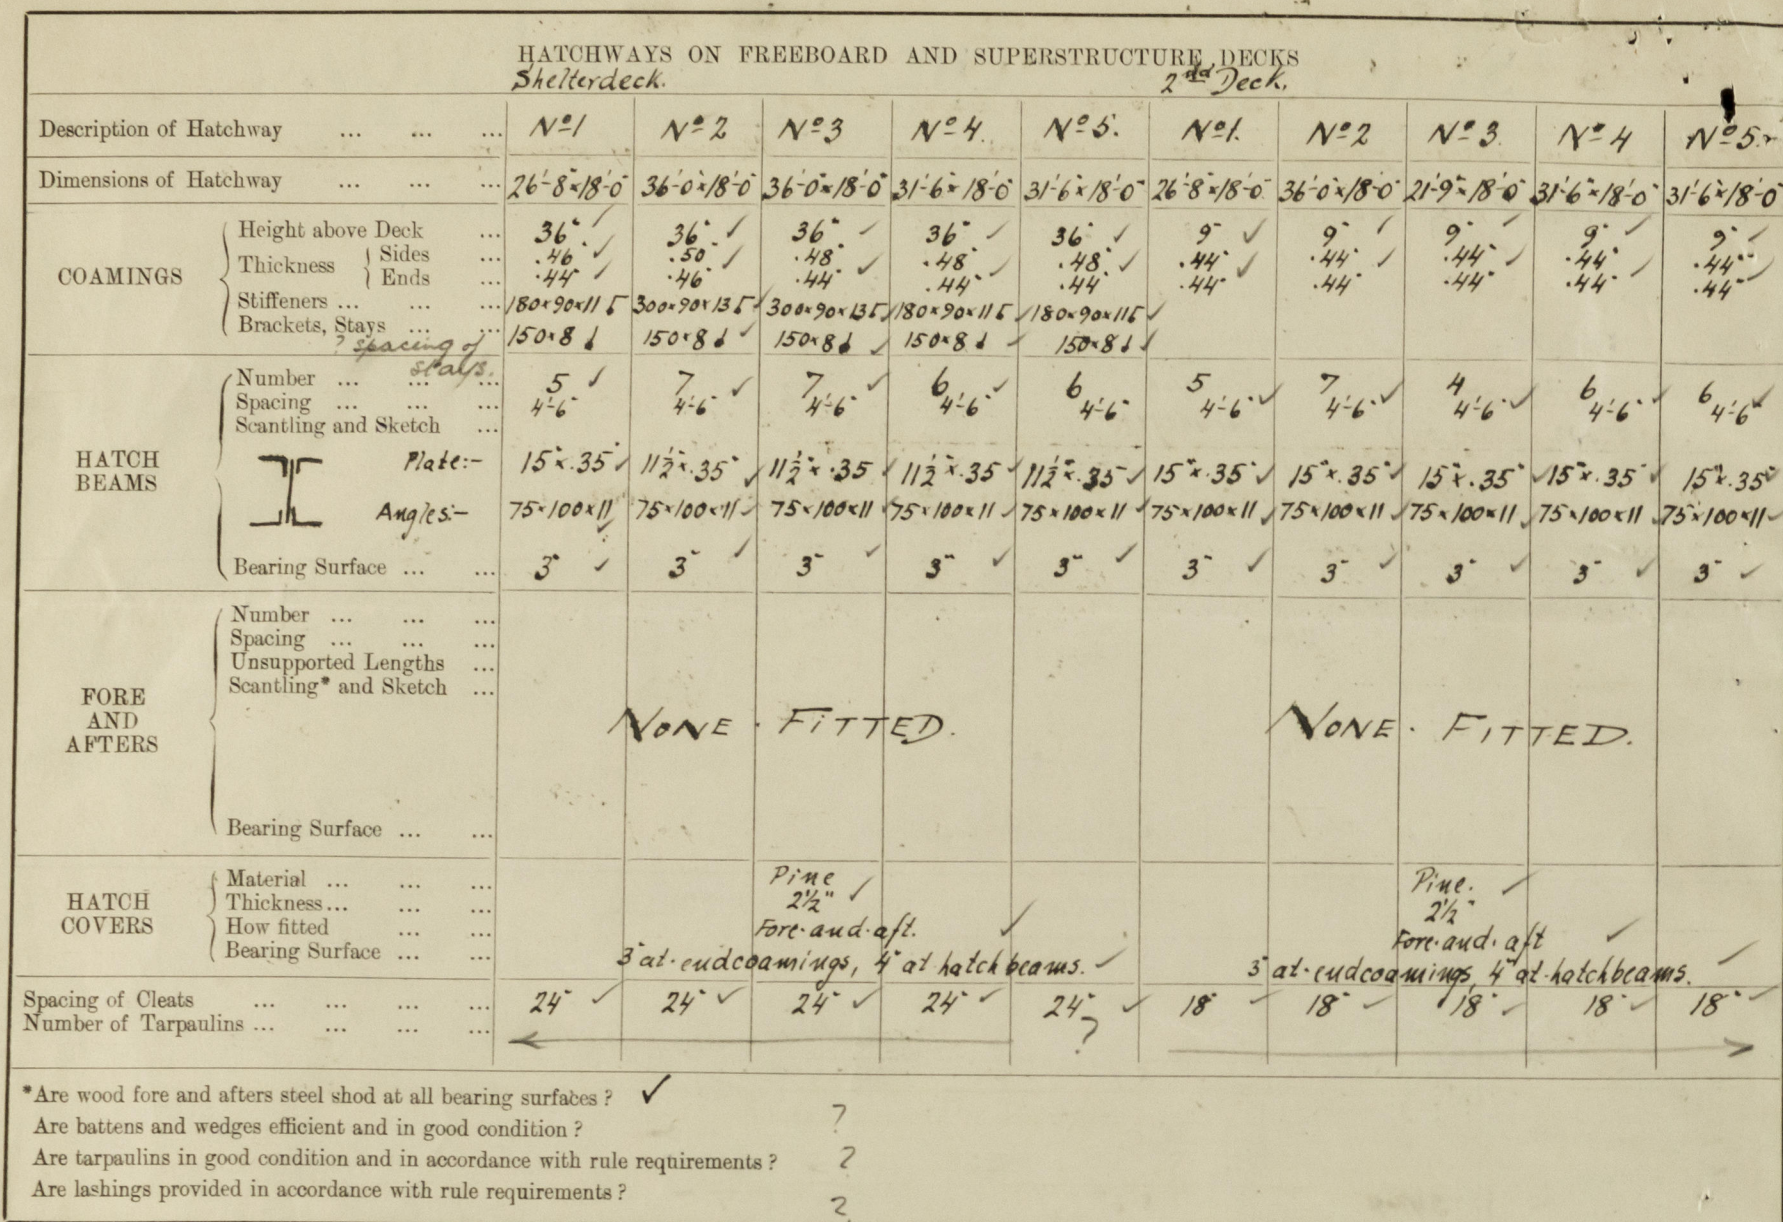 HATCHWAYS ON FREEBOARD AND SUPERSTRUCTURE DECKS
Shelterdeck. 2nd Deck.
Description of Hatchway ... ... ... Nº1 Nº2 Nº3 Nº4. Nº5. Nº1. Nº2 Nº3. Nº4 Nº5.
Dimensions of Hatchway ... ... ... 26'-8"x18'-0" 36'-0"x18'-0" 36'-0"x18'-0" 31'-6"x18'-0" 31'-6"x18'-0" 26'-8"x18'-0" 36'-0"x18'-0" 21'-9"x18'-0" 31'-6"x18'-0" 31'-6"x18'-0"
COAMINGS
Height above Deck ... 36" ✓ 36" ✓ 36" ✓ 36" ✓ 36" ✓ 9" ✓ 9" ✓ 9" ✓ 9" ✓ 9" ✓
Thickness
Sides ... .46" ✓ .50" ✓ .48" .48" .48" ✓ .44" .44" ✓ .44" .44" .44"
Ends ... .44" ✓ .46" .44" ✓ .44" ✓ .44" .44" ✓ .44" .44" ✓ .44" ✓ .44" ✓
Stiffeners ... ... ... 180x90x11 300x90x13 300x90x13 180x90x11 180x90x11 ✓
Brackets, Stays ... ... 150x8 150x8 ✓ 150x8 ✓ 150x8 ✓ 150x8 ✓
? spacing of
stays.
HATCH BEAMS
Number ... ... ... 5 ✓ 7 ✓ 7 ✓ 6 ✓ 6 5 7 4 6 6
Spacing ... ... ... 4'-6" 4'-6" 4'-6" 4'-6" 4'-6" 4'-6" ✓ 4'-6" ✓ 4'-6" ✓ 4'-6" ✓ 4'-6" ✓
Scantling and Sketch ...
Plate:- 15"x.35" ✓ 11½"x.35" ✓ 11½"x.35 ✓ 11½"x.35 ✓ 11½"x.35" ✓ 15"x.35" ✓ 15"x.35" ✓ 15"x.35" ✓ 15"x.35" ✓ 15"x.35" ✓
Angles:- 75x100x11 ✓ 75x100x11 ✓ 75x100x11 ✓ 75x100x11 ✓ 75x100x11 ✓ 75x100x11 ✓ 75x100x11 ✓ 75x100x11 ✓ 75x100x11 ✓ 75x100x11 ✓
Bearing Surface ... ... 3" ✓ 3" ✓ 3" ✓ 3" ✓ 3" ✓ 3" ✓ 3" ✓ 3" ✓ 3" ✓ 3" ✓
FORE AND AFTERS
Number ... ... ...
Spacing ... ... ...
Unsupported Lengths ...
Scantling* and Sketch ...
NONE · FITTED. NONE · FITTED.
Bearing Surface ... ...
HATCH COVERS
Material ... ... ... Pine Pine. ✓
Thickness... ... ... 2½" ✓ 2½"
How fitted ... ... Fore·and·aft. ✓ Fore·and·aft ✓
Bearing Surface ... ... 3" at·endcoamings, 4" at hatchbeams. ✓ 3" at·endcoamings, 4" at·hatchbeams. ✓
Spacing of Cleats ... ... ... ... 24" ✓ 24" ✓ 24" ✓ 24" ✓ 24" ✓ 18" ✓ 18" ✓ 18" ✓ 18" ✓ 18" ✓
Number of Tarpaulins ... ... ... ... ?
*Are wood fore and afters steel shod at all bearing surfaces ? ✓
Are battens and wedges efficient and in good condition ? ?
Are tarpaulins in good condition and in accordance with rule requirements ? ?
Are lashings provided in accordance with rule requirements ? ?